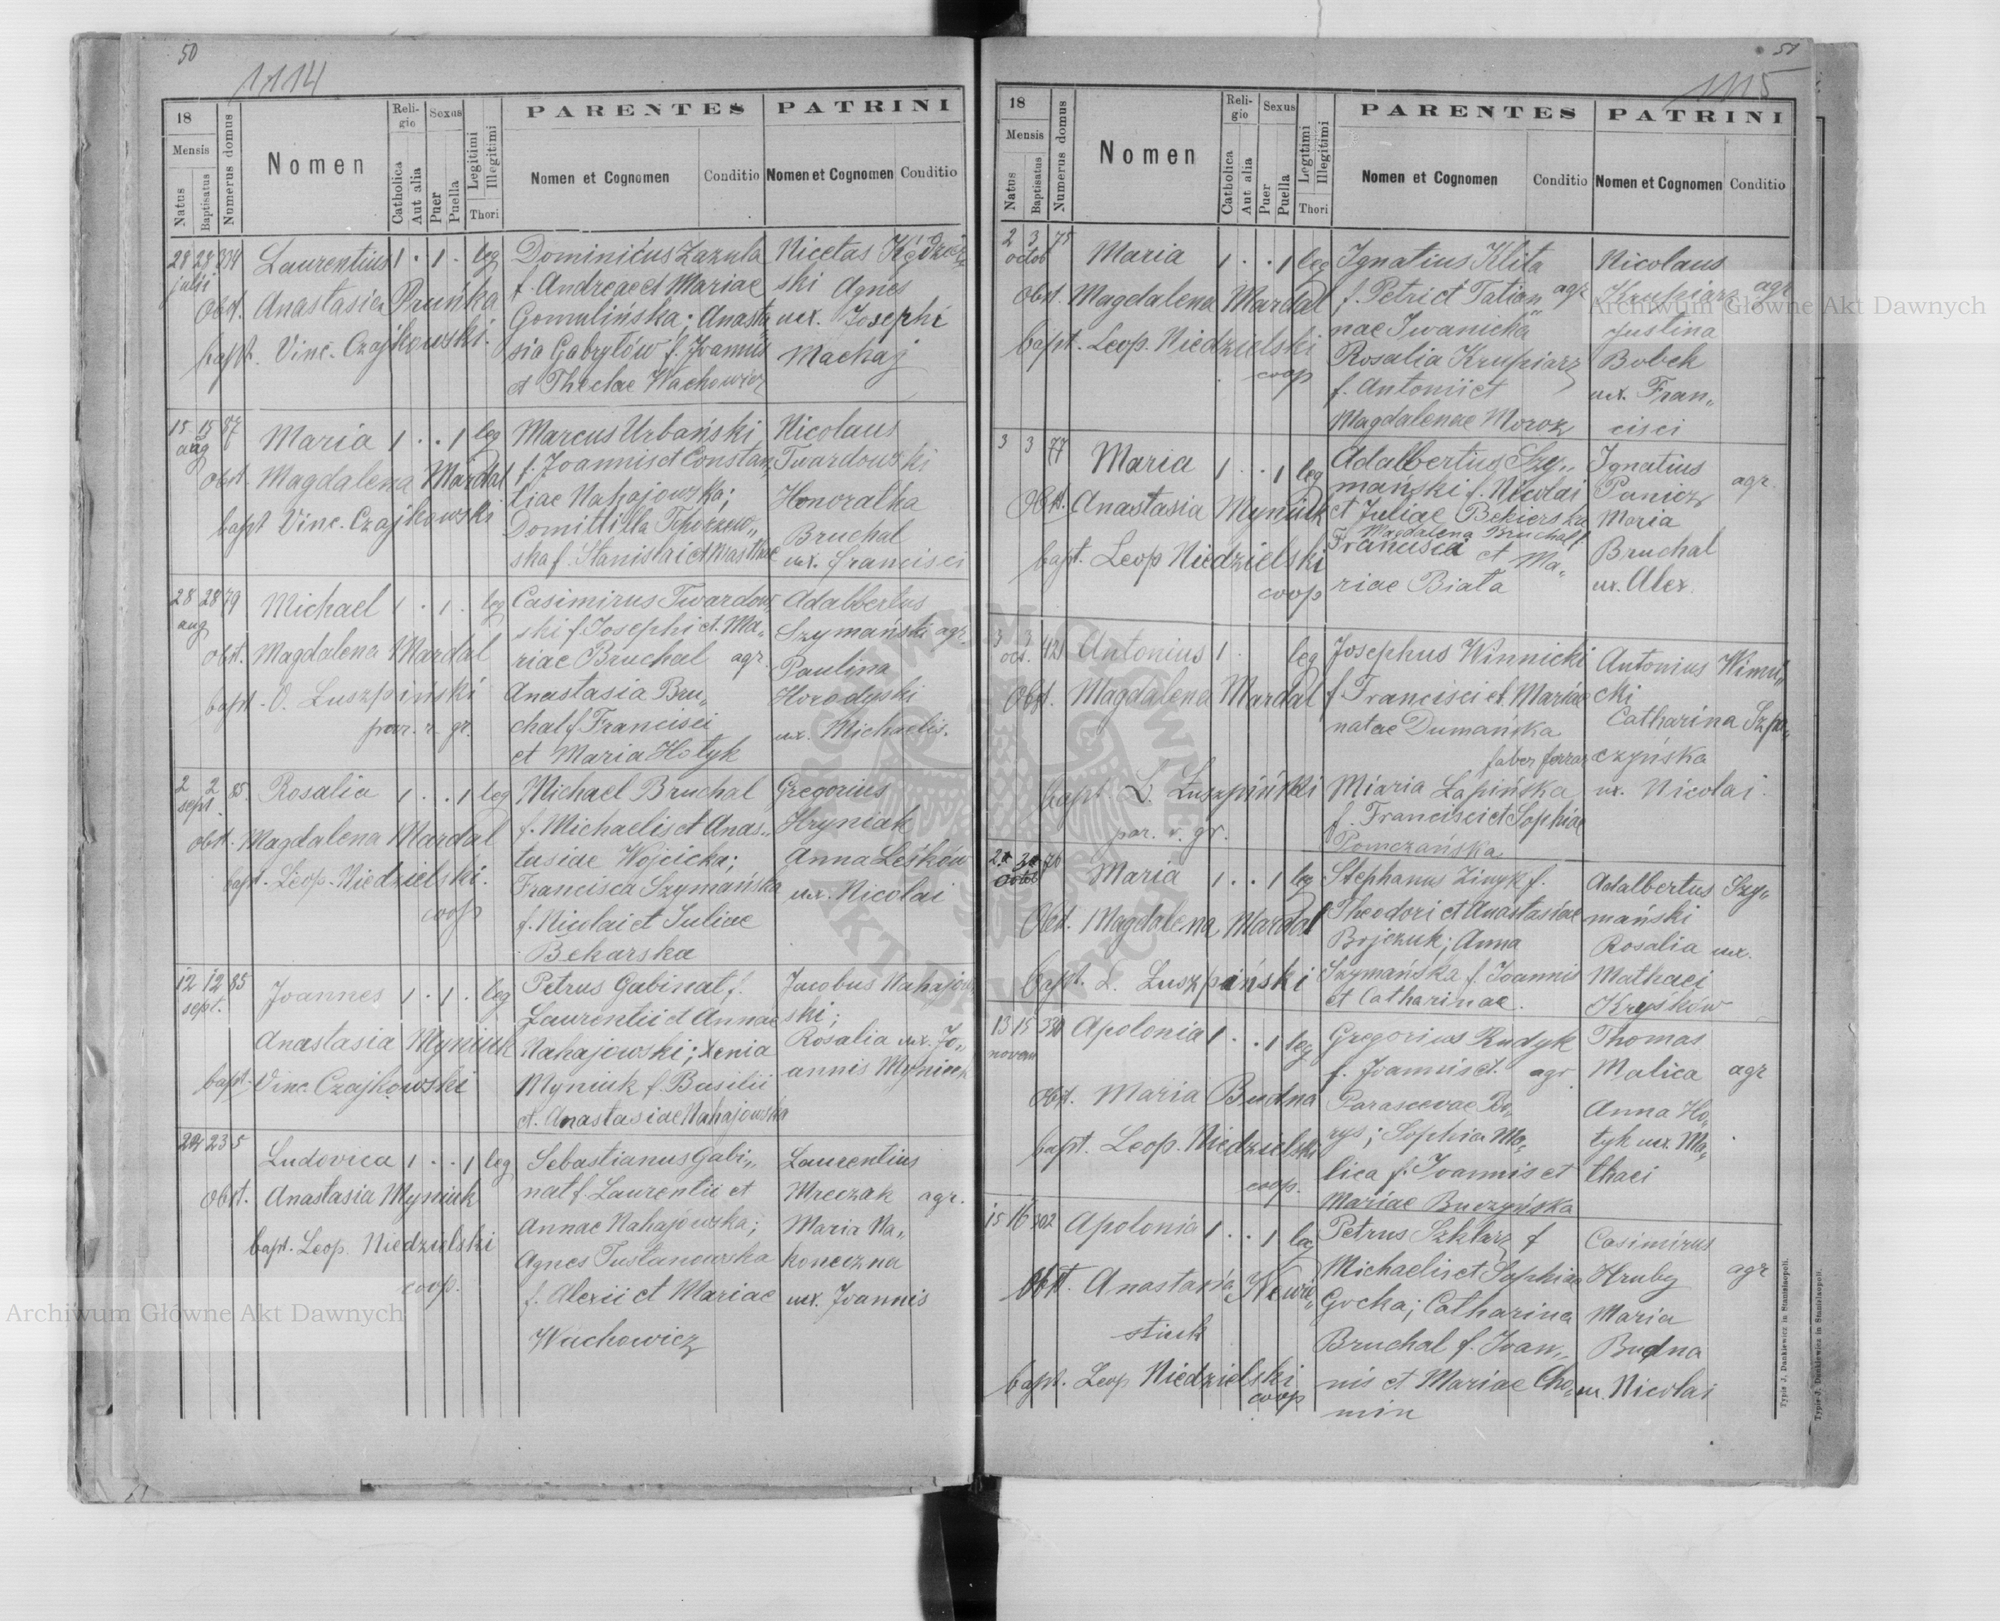 50
1114
18
Mensis
Natus
Baptisatus
Numerus domus
Nomen
Religio
Catholica
Aut alia
Sexus
Puer
Puella
Legitimi
Illegitimi
Thori
PARENTES
Nomen et Cognomen
Conditio
PATRINI
Nomen et Cognomen
Conditio
28 28 334 Laurentius 1 . 1 . leg
julii
Obst. Anastasia Pruńka
bapt. Vinc. Czajkowski.
Dominicus Zazula
f. Andreae et Mariae
Gomulińska; Anasta
sia Gabrylów f. Joannis
et Theclae Wachowicz
Nicetas
ski Agnes
ux. Josephi
Mackaj
15 15 87 Maria 1 . . 1 leg
aug
obst. Magdalena Mardal
bapt Vinc. Czajkowski
Marcus Urbański
f. Joannis et Constan
tiae Nahajowska;
Domittilla
ska f.
Nicolaus
Twardowski
Honoratha
Bruchal
ux. Francisci
28 28 79 Michael 1 . 1 . leg
aug
obst. Magdalena Mardal
bapt. O. Luszpiński
par. r. gr.
Casimirus Twardow
ski f. Josephi et Ma„
riae Bruchal agr.
Anastasia Bru„
chal f. Francisci
et Maria Hotyk
Adalbertus
Szymański agr.
Paulina
Horodyski
ux. Michaelis.
2 2 85. Rosalia 1 . . 1 leg
sept.
obst. Magdalena Mardal
bapt. Leop. Niedzielski.
coop
Michael Bruchal
f. Michaelis et Anas„
tasiae Wojcicka;
Francisca Szymańska
f. Nicolai et Juliae
Bekarska
Gregorius
Hryniak
Anna Leśków
ux. Nicolai
12 12 85 Joannes 1 . 1 . leg
sept.
Anastasia Myniuk
bapt. Vinc. Czajkowski
Petrus Gabinat f.
Laurentii et Annae
Nahajowski; Xenia
Myniuk f. Basilii
et. Anastasiae Nahajowska
Jacobus Nahajow
ski;
Rosalia ux. Jo„
annis Myniuk
23 5 Ludovica 1 . . 1 leg
obst. Anastasia Myniuk
bapt. Leop. Niedzielski
coop.
Sebastianus Gabi„
nat f. Laurentii et
Annae Nahajowska;
Agnes Tustanowska
f. Alexii et Mariae
Wachowicz
Laurentius
Mreczak agr.
Maria Na„
koneczna
ux. Joannis
51
1115
18
Mensis
Natus
Baptisatus
Numerus domus
Nomen
Religio
Catholica
Aut alia
Sexus
Puer
Puella
Legitimi
Illegitimi
Thori
PARENTES
Nomen et Cognomen
Conditio
PATRINI
Nomen et Cognomen
Conditio
2 3 75 Maria 1 . . 1 leg
octob
Obst. Magdalena Mardal
bapt. Leop. Niedzielski
coop
Ignatius Klita
f. Petri et Tatian„ agr
nae Iwanicka
Rosalia Krupiarz
f. Antonii et
Magdalenae Moroz
Nicolaus
Krupiarz agr
Justina
Bobek
ux. Fran„
cisci
3 3 77 Maria 1 . . 1 leg
Obst. Anastasia Myniuk
bapt. Leop Niedzielski
coop
Adalbertus Szy„
mański f. Nicolai
et Juliae Bekierska
Magdalena Bruchal f
Francisci et Ma„
riae Biała
Ignatius
Panicz agr.
Maria
Bruchal
ux. Alex.
3 3 421 Antonius 1 . leg
oct.
Obst. Magdalena Mardal
bapt L. Luszpiński
par. r. gr.
Josephus Winnicki
f. Francisci et Mariae
natae Dumańska
faber ferrar
Maria Łapińska
f. Francisci et Sophiae
Pomczańska
Antonius Winni„
cki
Catharina Szpa„
czyńska
ux. Nicolai.
76 Maria 1 . . 1 leg
Obst. Magdalena Mardal
bapt. L. Luszpiński
Stephanus Zinyk f.
Theodori et Anastasiae
Bojczuk; Anna
Szymańska f. Joannis
et Catharinae.
Adalbertus Szy„
mański
Rosalia ux.
Mathaei
Kryśków
13 15 330 Apolonia 1 . . 1 leg
novem
obst. Maria Budna
bapt. Leop. Niedzielski
coop.
Gregorius Rudyk
f. Joannis et. agr.
Parascevae Bo„
rys; Sophia Ma„
lica f. Joannis et
Mariae Buczyńska
Thomas
Malica agr
Anna Ho„
tyk ux. Ma„
thaei
15 16 302 Apolonia 1 . . 1 leg
obst. Anastasia Newie„
stiuk
bapt. Leop Niedzielski
coop
Petrus Szklarz f
Michaelis et Sophiae
Gocka; Catharina
Bruchal f. Joan„
nis et Mariae Cho„
min
Casimirus
Hruby agr
Maria
Budna
ux. Nicolai
Typis J. Dankiewicz in Stanislaopoli.
Typis J. Dankiewicz in Stanislaopoli.
Archiwum Główne Akt Dawnych
Archiwum Główne Akt Dawnych
ARCHIWUM GŁÓWNE AKT DAWNYCH